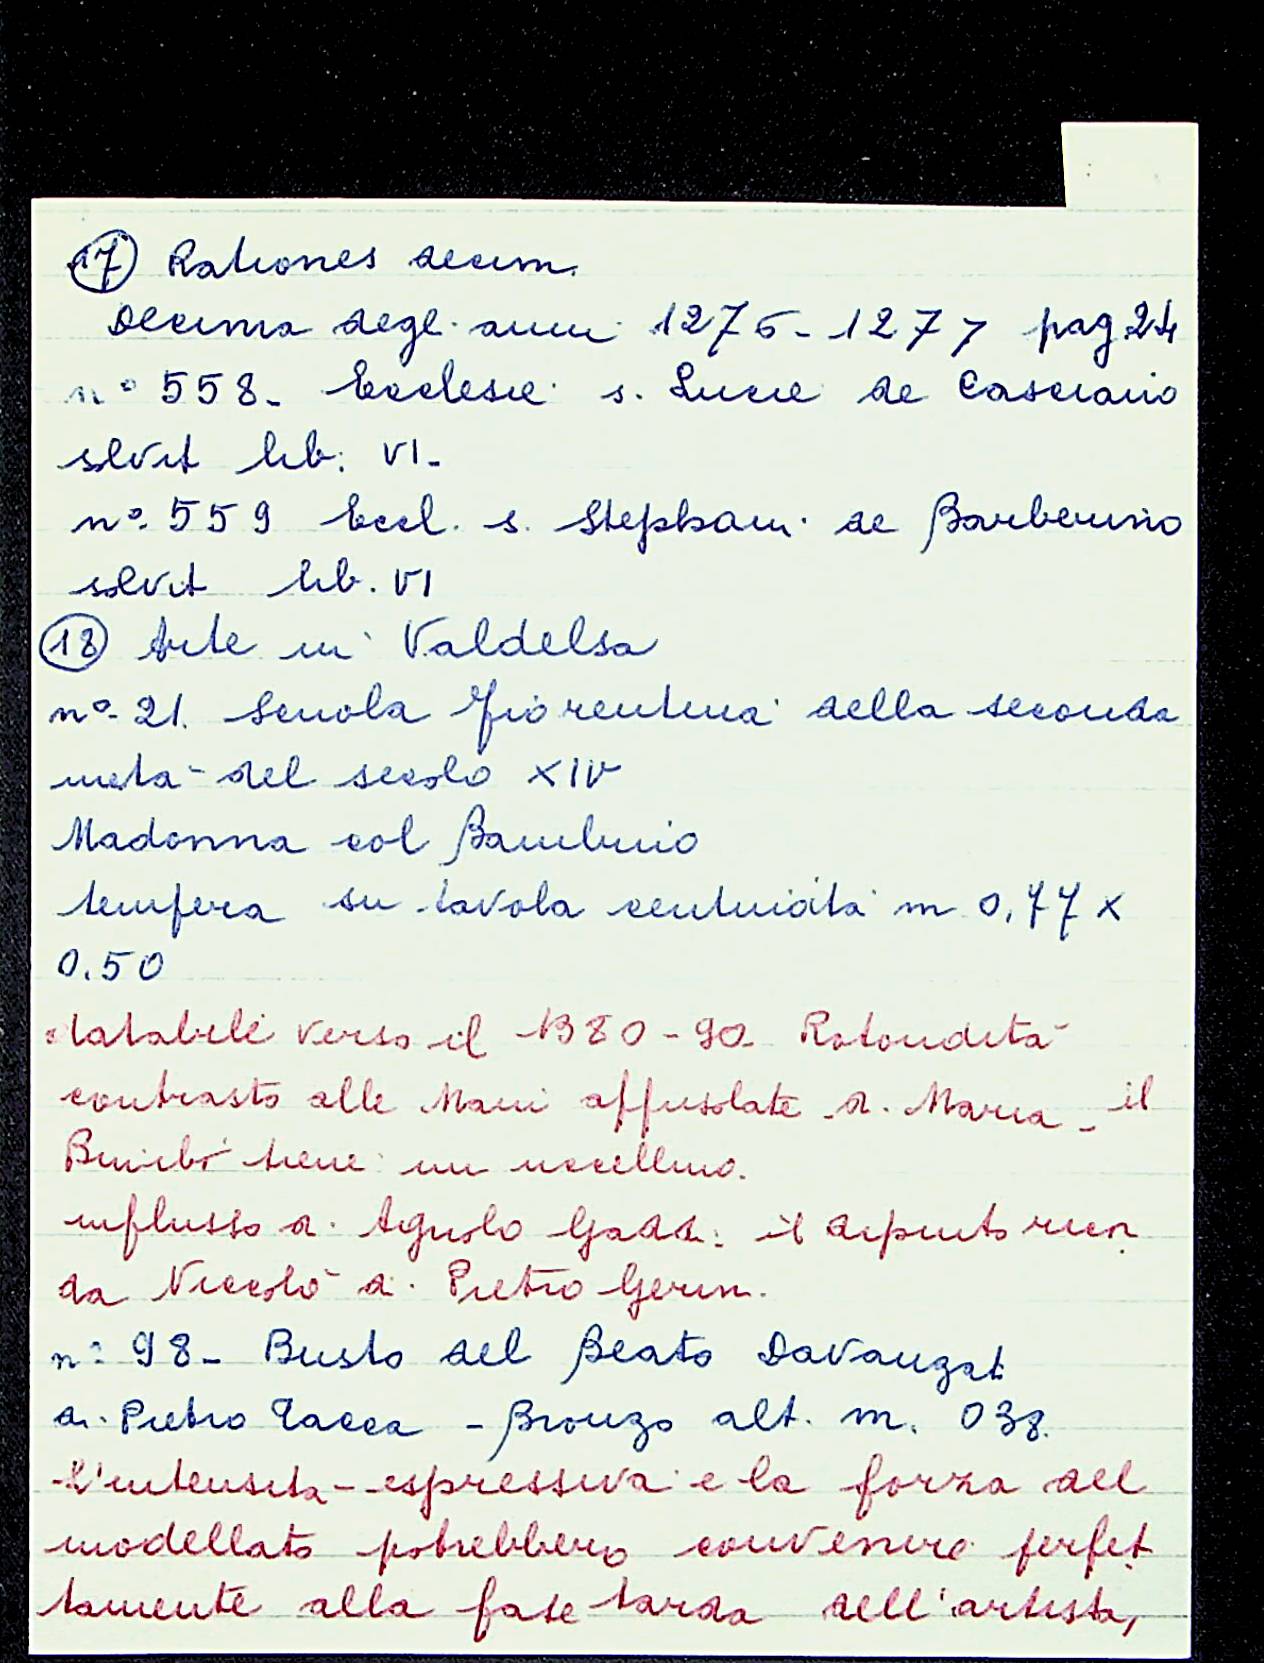 17 Rationes decim.
Decima degli anni 1276-1277 pag 24
n° 558- Ecclesie s. Lucie de Casciano
solvit lib. VI-
n° 559 Eccl. s. Stephani de Barberino
solvit lib. VI
18 Arte in Valdelsa
n° 21. Scuola fiorentina della seconda
metà del secolo XIV
Madonna col Bambino
tempera su tavola centinata m 0,77 x
0.50
databile verso il 1380-90 Rotondità
contrasto alle Mani affusolate di Maria - il
Bimbo tiene un uccellino.
influsso di Agnolo Gaddi: il dipinto
da Niccolò di Pietro Gerin.
n° 98- Busto del Beato Davanzati
di Pietro Tacca - Bronzo alt. m. 038.
L'intensità espressiva e la forza del
modellato potrebbero convenire perfet
tamente alla fase tarda dell'artista,